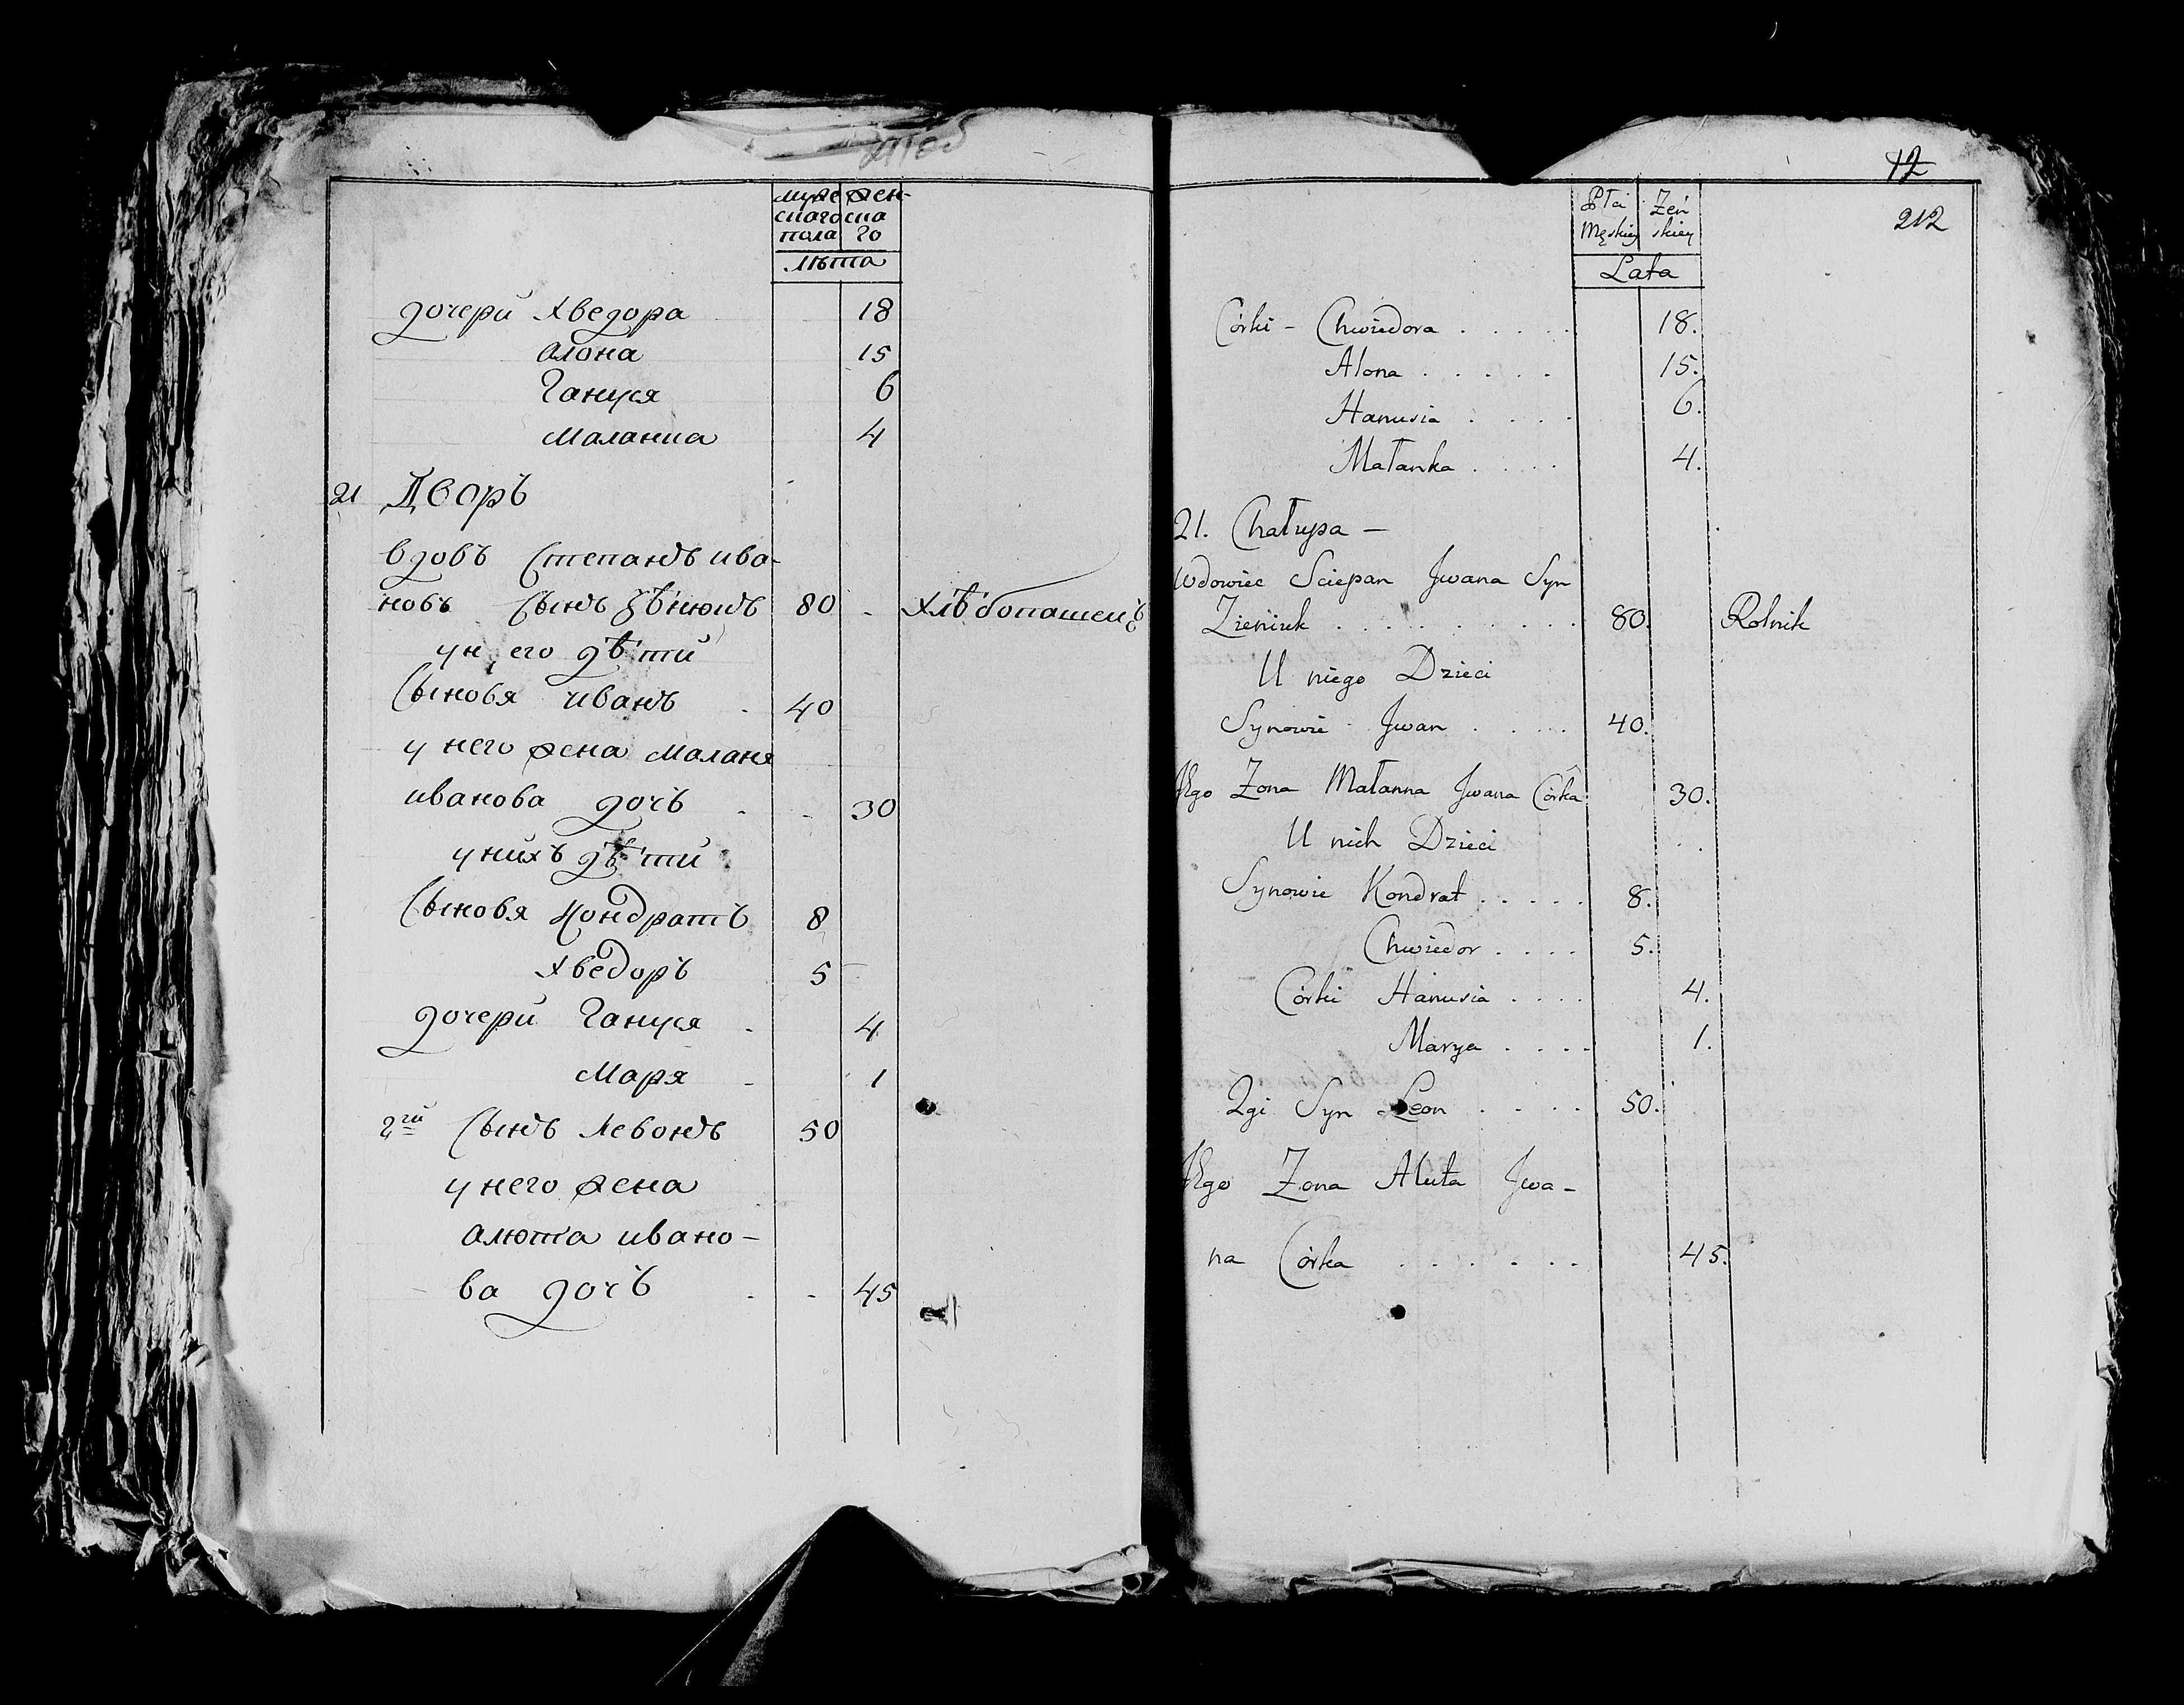 мужескаго пола
женскаго
лѣта
дочери Хведора 18
алона 15
Гануся 6
Маланка 4
21 Дворъ
вдовъ Степанъ ива-
новъ Сынъ Зѣнюкъ 80 - Хлѣбопашецъ
у него дѣти
Сыновя иванъ 40
у него жена Маланя
иванова дочъ 30
у нихъ дѣти
Сыновя Кондратъ 8
Хведоръ 5
дочери Гануся 4
Маря 1
2гй Сынъ Левонъ 50
у него жена
алюта ивано-
ва дочъ 45
12
212
Płci Męskiey
Żeń skiey
Lata
Córki - Chwiedora 18.
Alona 15.
Hanusia 6.
Małanka 4.
21. Chałupa -
Wdowiec Sciepan Jwana Syn
Zieniuk 80. Rolnik
U niego Dzieci
Synowie Jwan 40.
Jego Zona Małanna Jwana Córka 30.
U nich Dzieci
Synowie Kondrat 8.
Chwiedor 5.
Córki Hanusia 4.
Marya 1.
2gi Syn Leon 50.
Jego Zona Aluta Jwa-
na Córka 45.